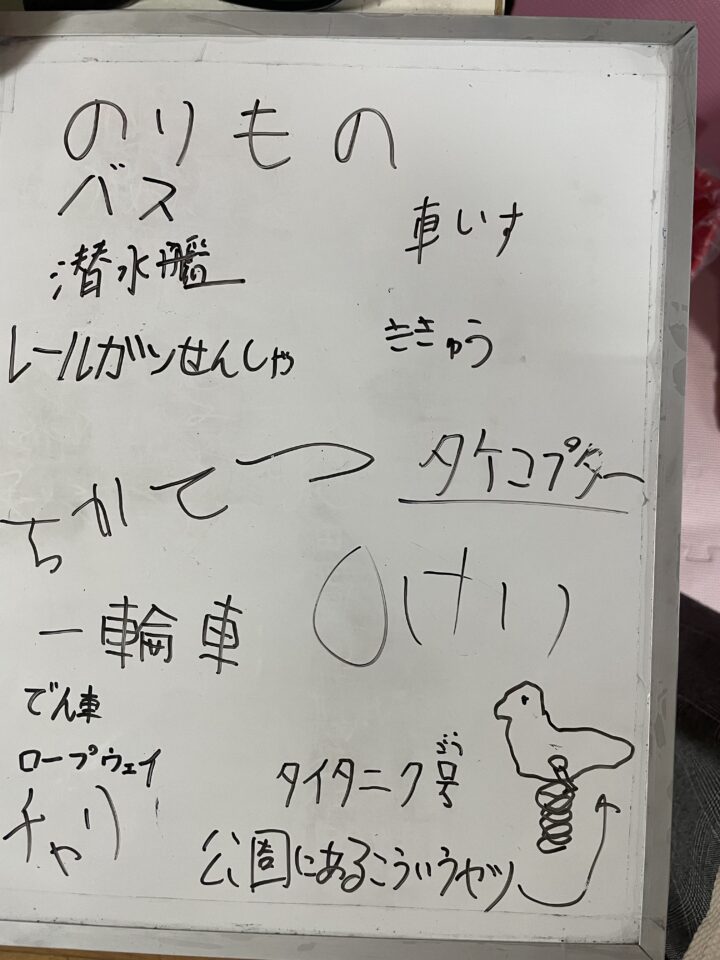 のりもの
バス
車いす
潜水艦
ききゅう
レールガンせんしゃ
タケコプター
ちかてつ
一輪車
でん車
ロープウェイ
タイタニク号
ごう
チャリ
公園にあるこういうヤツ